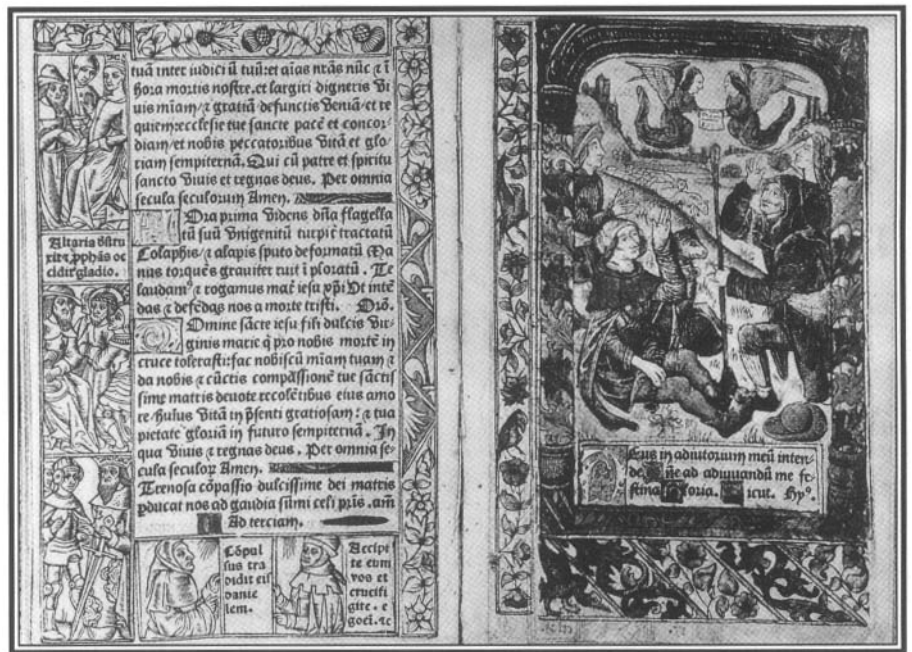 tuã inter iudiciũ tuũ: et aĩas nr̃as nũc ⁊ ĩ
hora mortis nostre. et largiri digneris vi
uis mĩam / ⁊ gratiã defunctis veniã / et re
quiem: ecclesie tue sancte pacẽ et concor-
diam / et nobis peccatoribus vitã et glo-
riam sempiternã. Qui cũ patre et spiritu
sancto viuis et regnas deus. Per omnia
secula seculorum Amen.
Ora prima videns dña flagella
tũ suũ vnigenitũ turpit̃ tractatũ
Colaphis / ⁊ alapis sputo deformatũ Ma
nus torquẽs grauiter ruit ĩ ploratũ. Te
laudamꝰ ⁊ rogamus mat̃ iesu xp̃i Vt intẽ
das ⁊ defẽdas nos a morte tristi. Orõ.
Omine sãcte iesu fili dulcis vir
ginis marie q̃ pro nobis mortẽ in
cruce tolerasti: fac nobiscũ mĩam tuam ⁊
da nobis ⁊ cũctis compassionẽ tue sãctis
sime matris deuote recolẽtibus eius amo
re / huius vitã in p̃senti gratiosam: ⁊ tua
pietate gloriã in futuro sempiternã. In
qua viuis ⁊ regnas deus. Per omnia se-
cula seculoꝝ Amen.
Trenosa cõpassio dulcissime dei matris
ꝑducat nos ad gaudia sũmi celi pr̃is. am̃
Ad terciam.
Altaria
xit ⁊ ꝓphãs oc
cidit gladio.
Cõpul
sus tra
didit eis
danie
lem.
Accipi
te eum
vos et
crucifi
gite. e
goci. ⁊c
Eus in adiutorium meũ inten
de. ñe ad adiuuandũ me fe-
stina loria. icut. Hyꝰ.